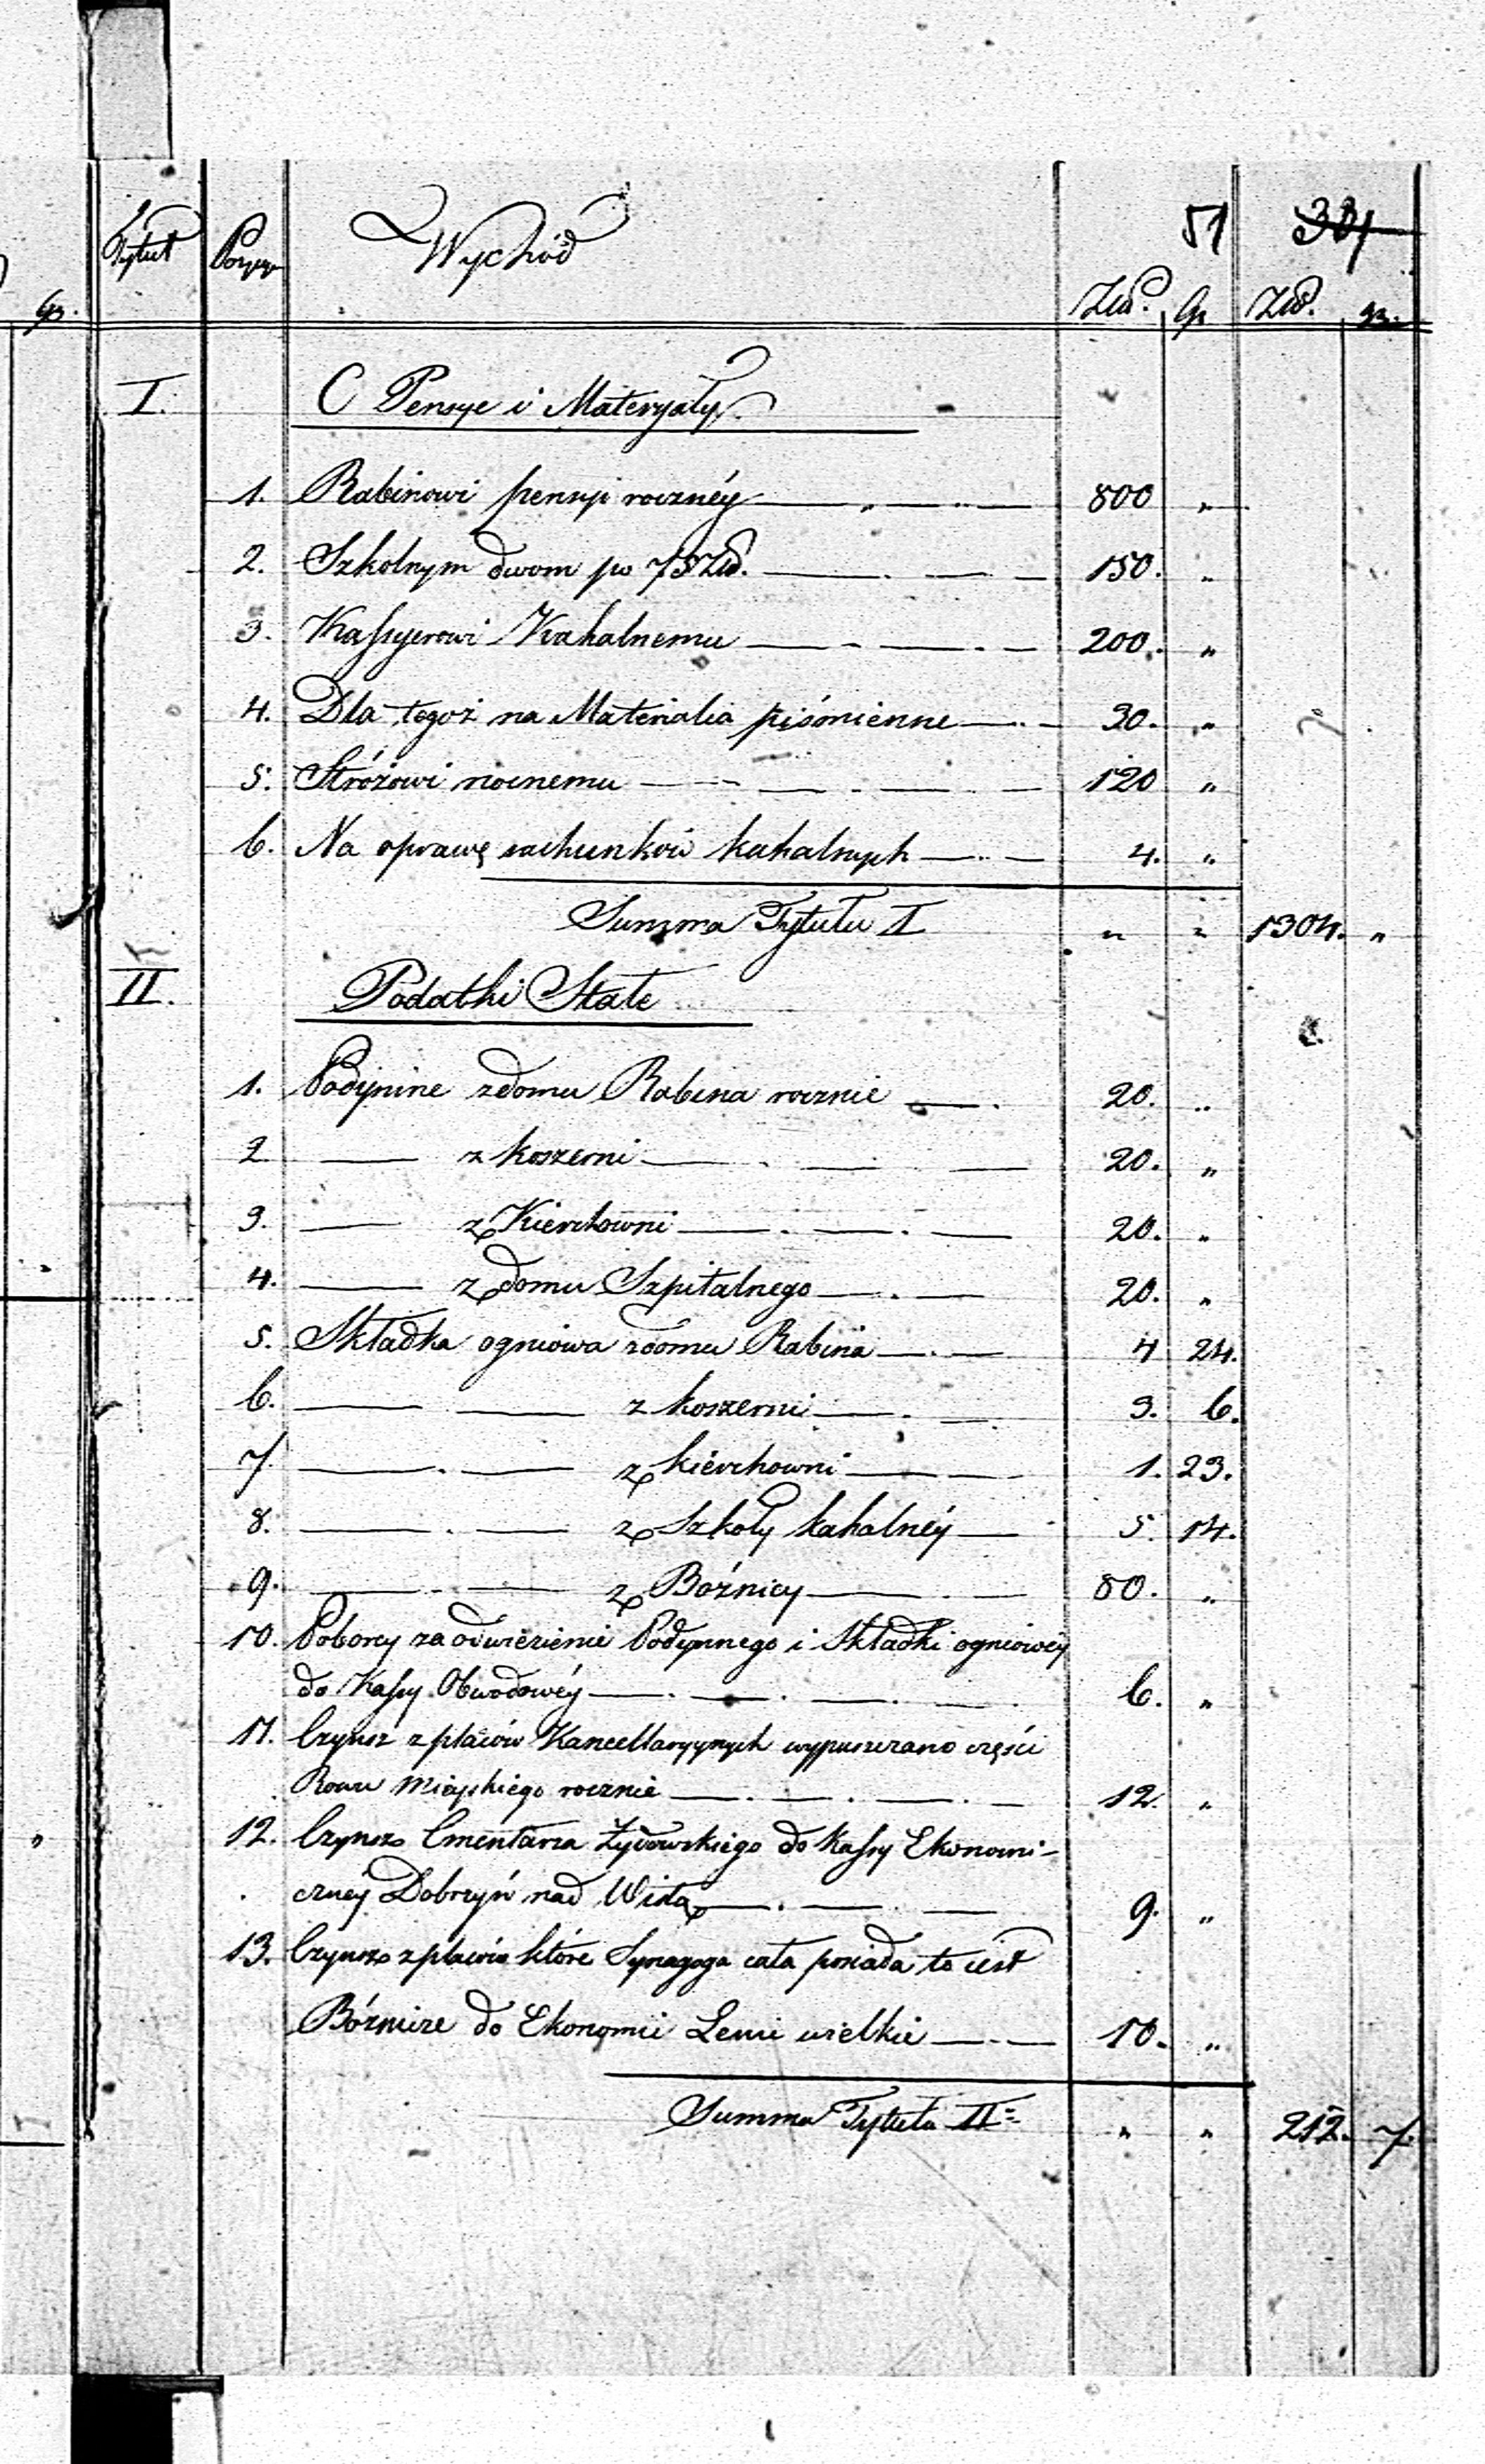 51 301
Tytuł Pozycya Wychód Złd. Gr Złd. gr.
gr.
I. C Pensye i Materyały.
1. Rabinowi pensyi rocznéy 800 "
2. Szkolnym dwom po 75 Złd. 150. "
3. Kassyerowi Kahalnemu 200. "
4. Dla tegoż na Materialia piśmienne 30. "
5. Stróżowi nocnemu 120 "
6. Na oprawę rachunków kahalnych 4. "
Summa Tytułu I " " 1304. "
II. Podatki Stałe
1. Podymne z domu Rabina rocznie 20. "
2 z koszerni 20. "
3. z Kierchowni 20. "
4. z domu Szpitalnego 20. "
5. Składka ogniowa z domu Rabina 4 24.
6. z koszerni 3. 6.
7 z kierchowni 1. 23.
8. z Szkoły kahalnéy 5. 14.
9. z Bożnicy 80. "
10. Poborcy za odwiezienie Podymnego i Składki ogniowéy
do Kassy Obwodowéy 6. "
11. Czynsz z placów Kancellaryynych wypuszczano części
Rowu Mieyskiego rocznie 12. "
12. Czynsz Cmentarza Żydowskiego do Kassy Ekonomi-
cznéy Dobrzyń nad Wisłą 9. "
13. Czynsz z placów które Synagoga cała posiada to iest
Bóżnice do Ekonomii Lenie wielkie 10. "
Summa Tytułu II " " 212. 7.